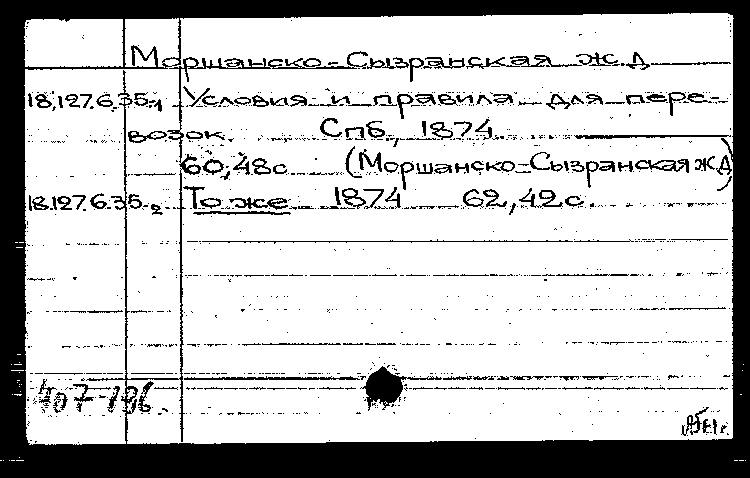 Моршанско-Сызранская ж.д
18,127.6.35-1 Условия и правила для пере-
возок. Спб., 1874.
60,48с (Моршанско-Сызранская ж.д)
18.127.6.35-2 То же 1874 62,42с.
407-196.